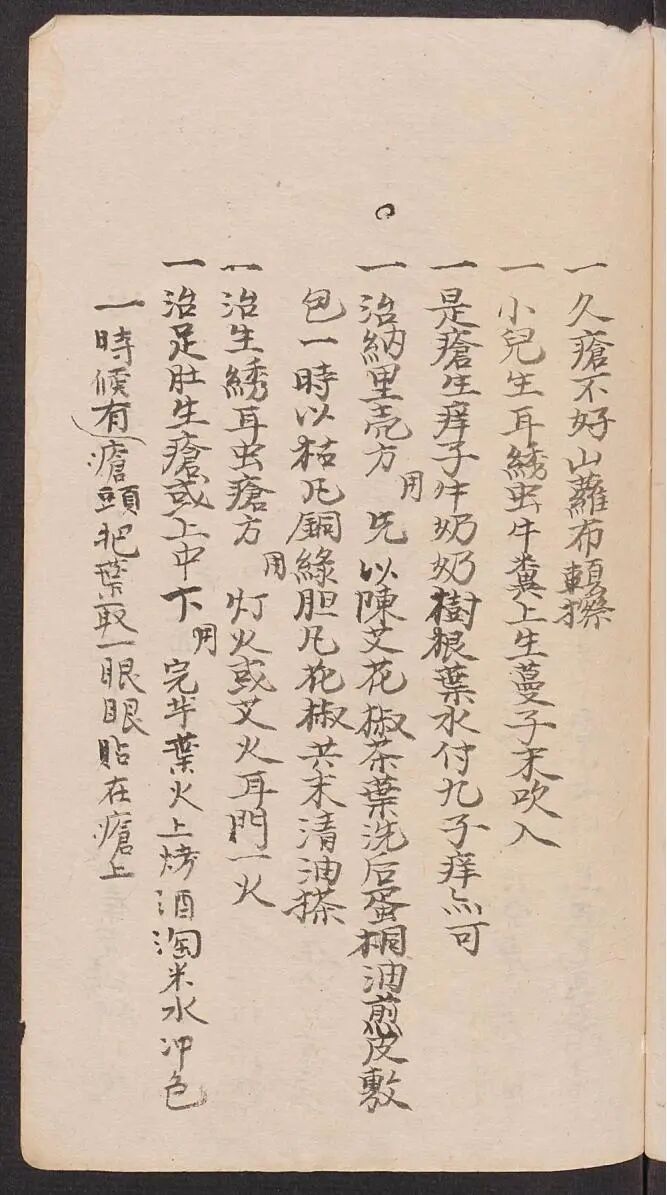 一久瘡不好山蘿布頼擦
一小兒生耳綉虫牛糞上生蔓子末吹入
一是瘡生痒子牛奶奶樹根葉水付九子痒亦可
一治納里壳方用先以陳艾花椒茶葉洗后蛋桐油煎皮敷
包一時以枯凡銅綠胆凡花椒共末清油搽
一治生綉耳虫瘡方用灯火或艾火耳門一火
一治足肚生瘡或上中下用完半葉火上烤酒淘米水冲色
一時候有瘡頭把葉取一眼眼貼在瘡上